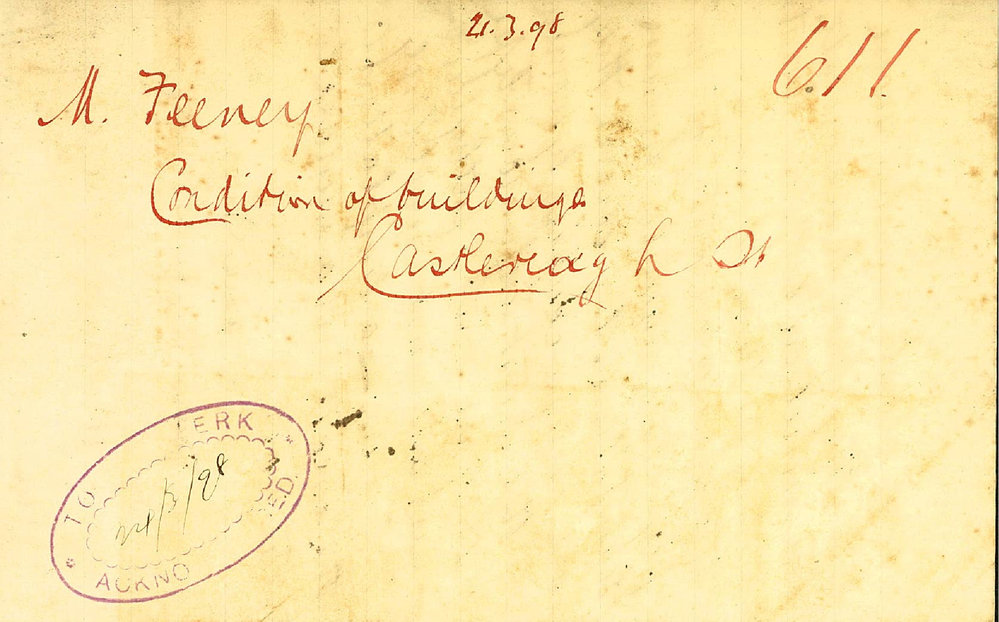 21.3.98
611
M. Feeney
Condition of buildings
Castlereagh St
TO ERK
24/3/98
ACKNO ED.